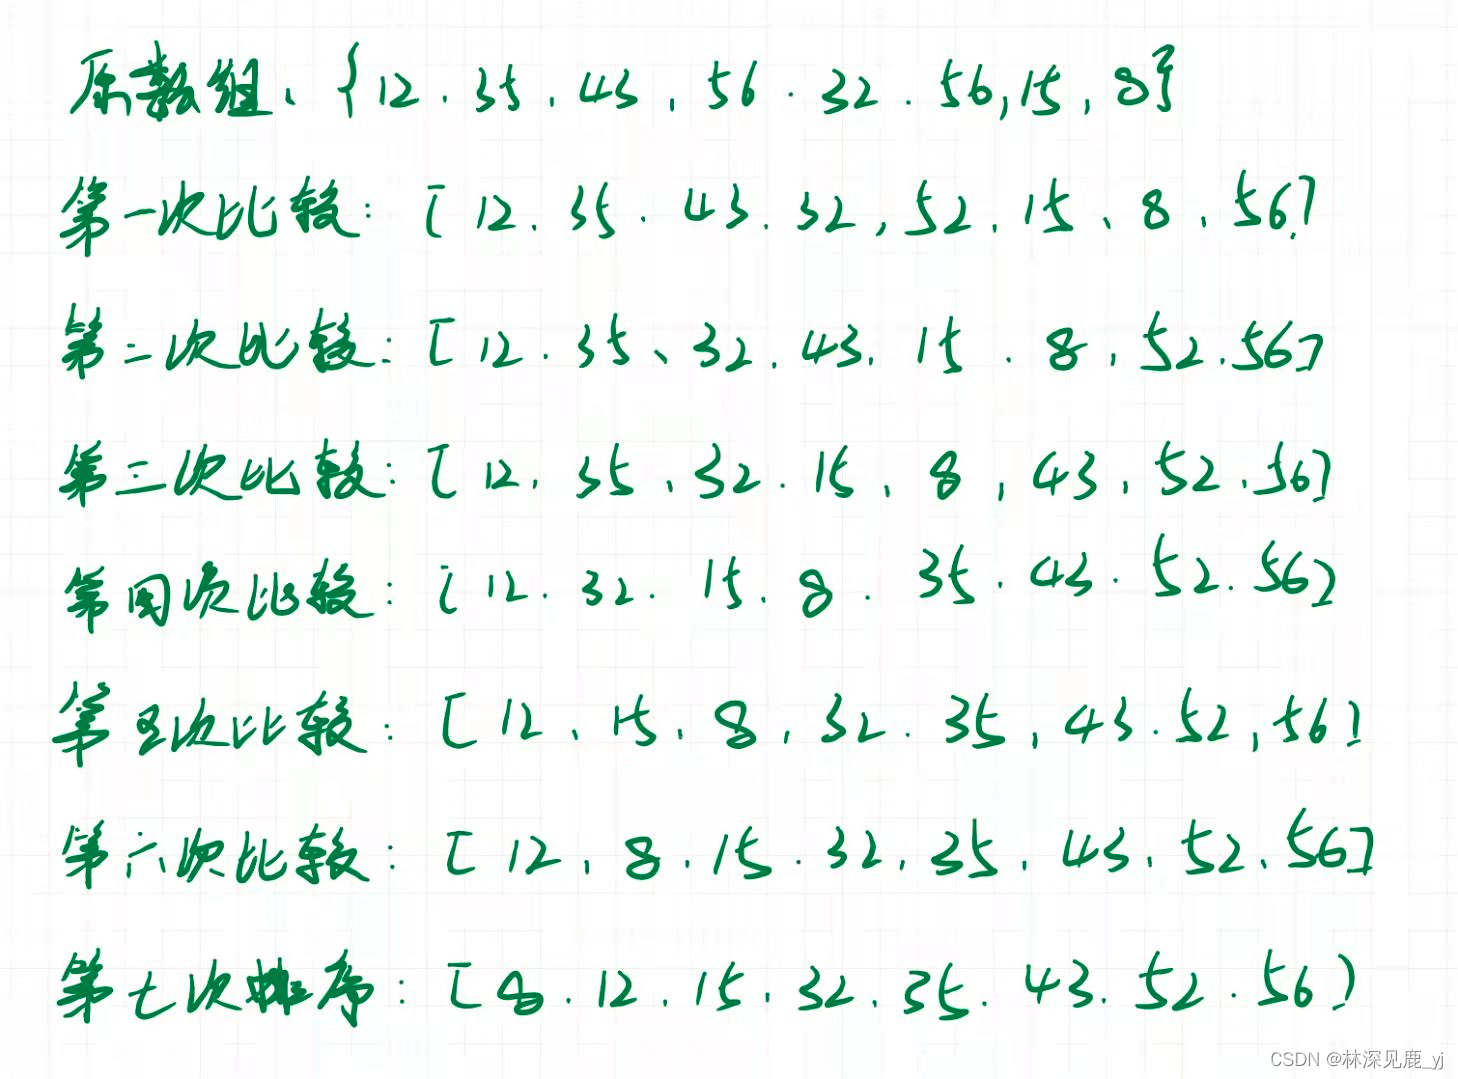 原数组、{12.35.43.56.32.56,15.8}
第一次比较:[12.35.43.32,52.15、8.56]
第二次比较:[12.35、32.43.15.8.52.56]
第三次比较:[12.35.32.15.8,43.52.56]
第四次比较:[12.32.15.8.35.43.52.56]
第五次比较:[12.15.8.32.35,43.52,56]
第六次比较:[12.8.15.32.35.43.52.56]
第七次排序:[8.12.15.32.35.43.52.56]
CSDN @林深见鹿_yj